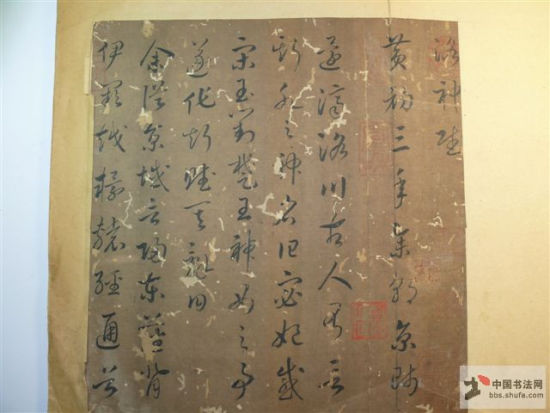 洛神賦
黄初三年余朝京師
還濟洛川古人有言
斯水之神名曰宓妃感
宋玉對楚王神女之事
遂作斯賦其詞曰
余從京域言歸東藩背
伊闕越轘轅經通谷
中国书法网
bbs.shufa.com